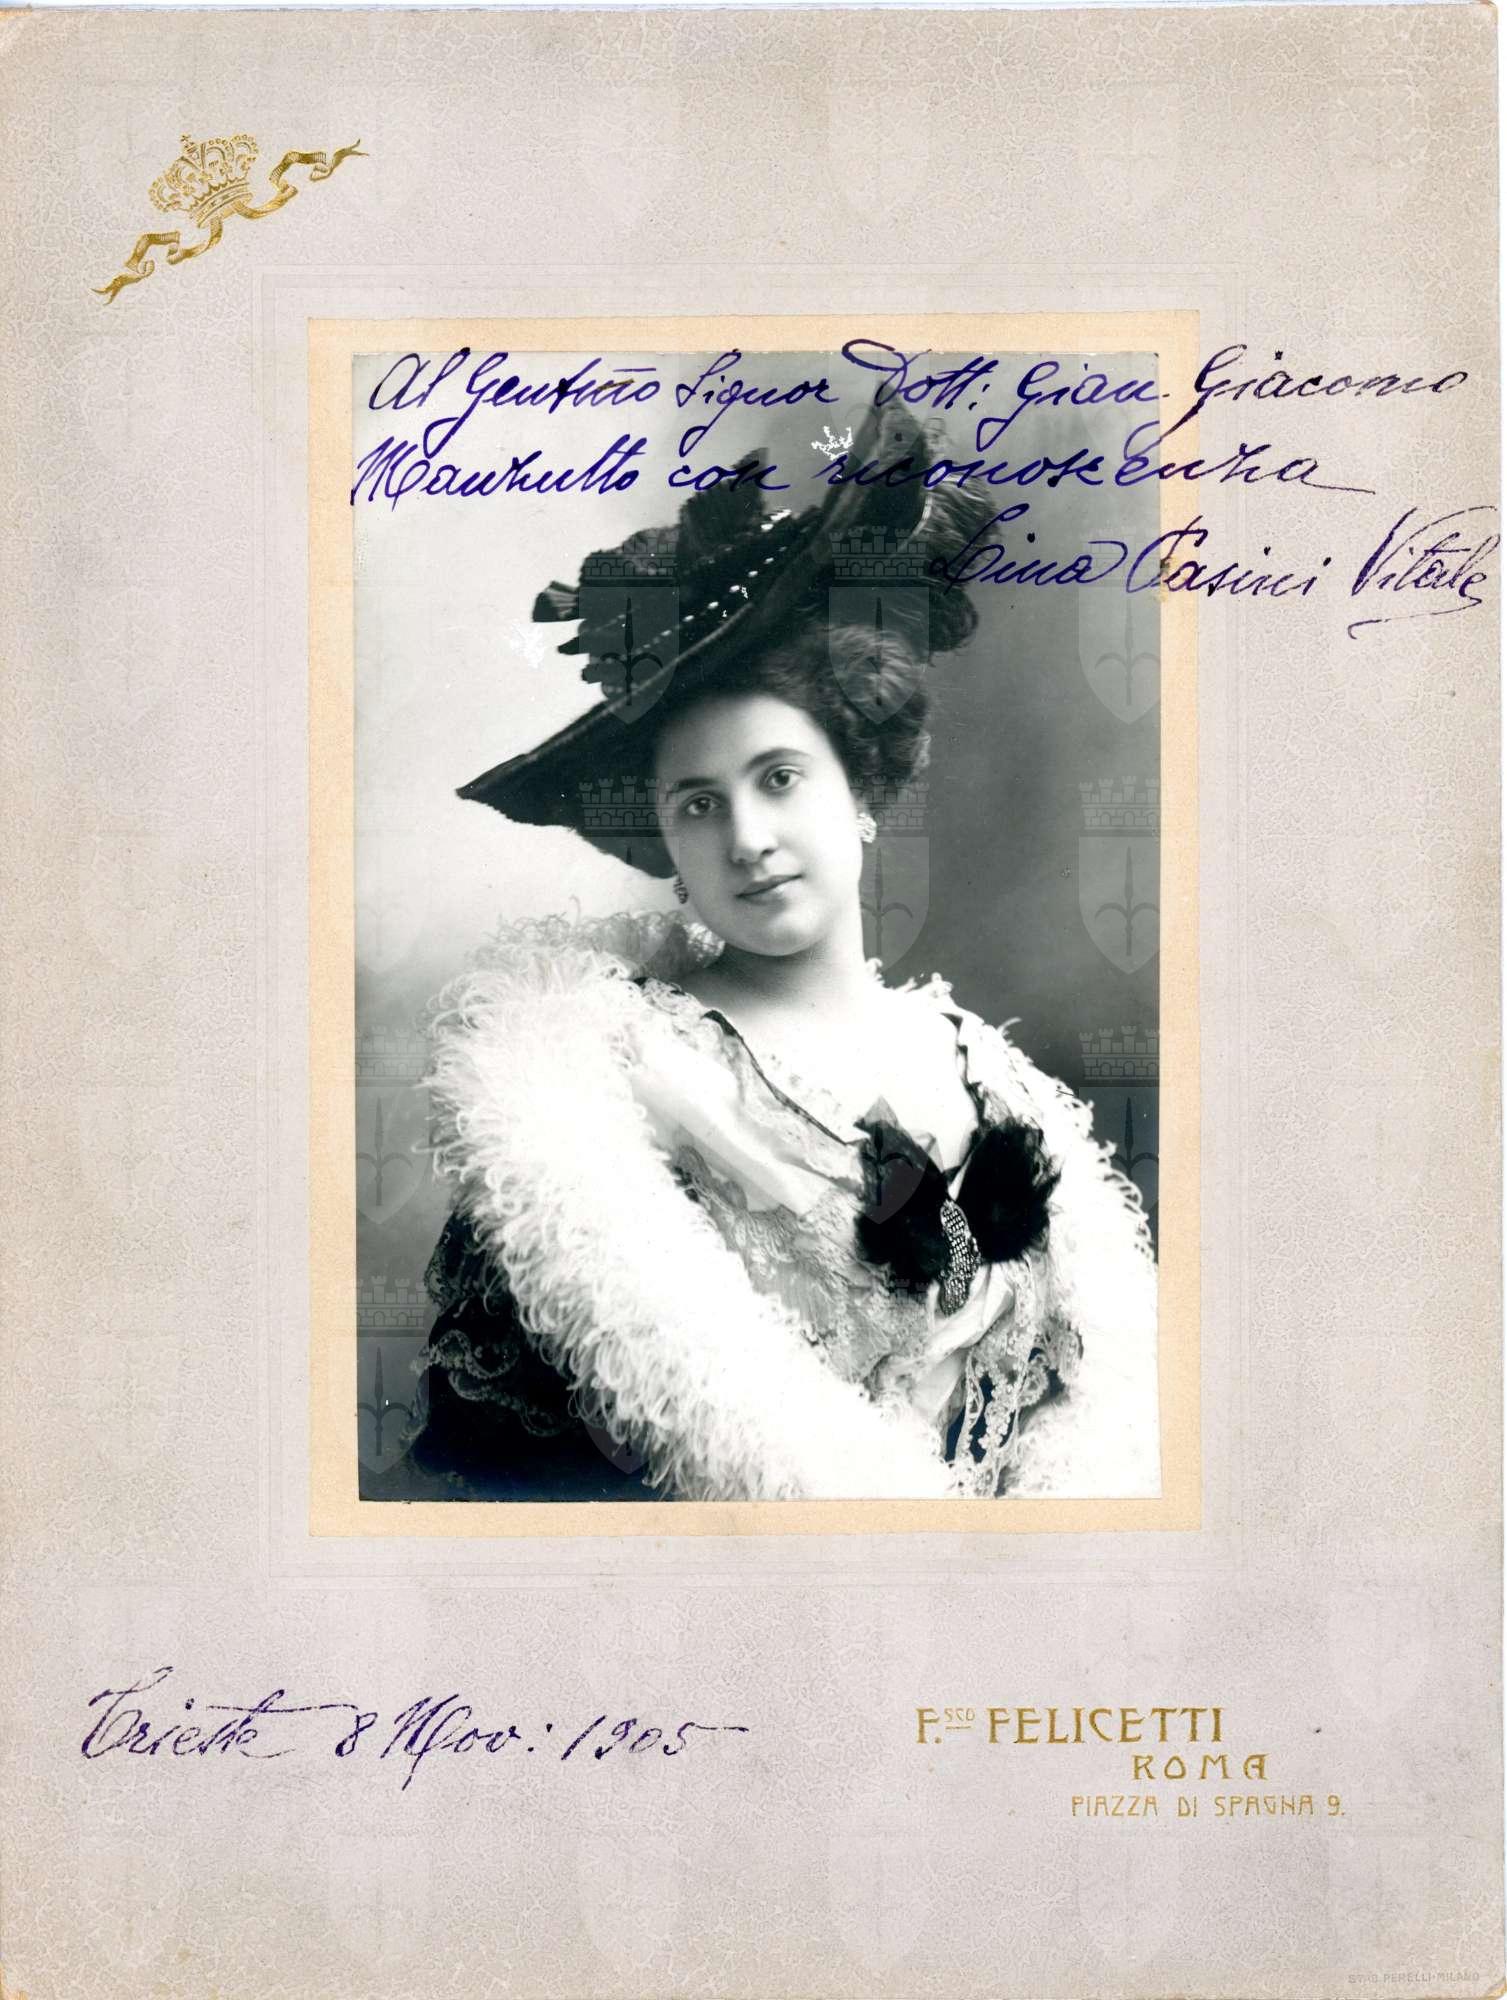 Al Gentmo Signor Dott: Gian. Giacomo
Manzutto con riconoscenza
Lina Pasini Vitale
Trieste 8 Nov: 1905
F.sco FELICETTI
ROMA
PIAZZA DI SPAGNA 9.
STAB. PERELLI-MILANO